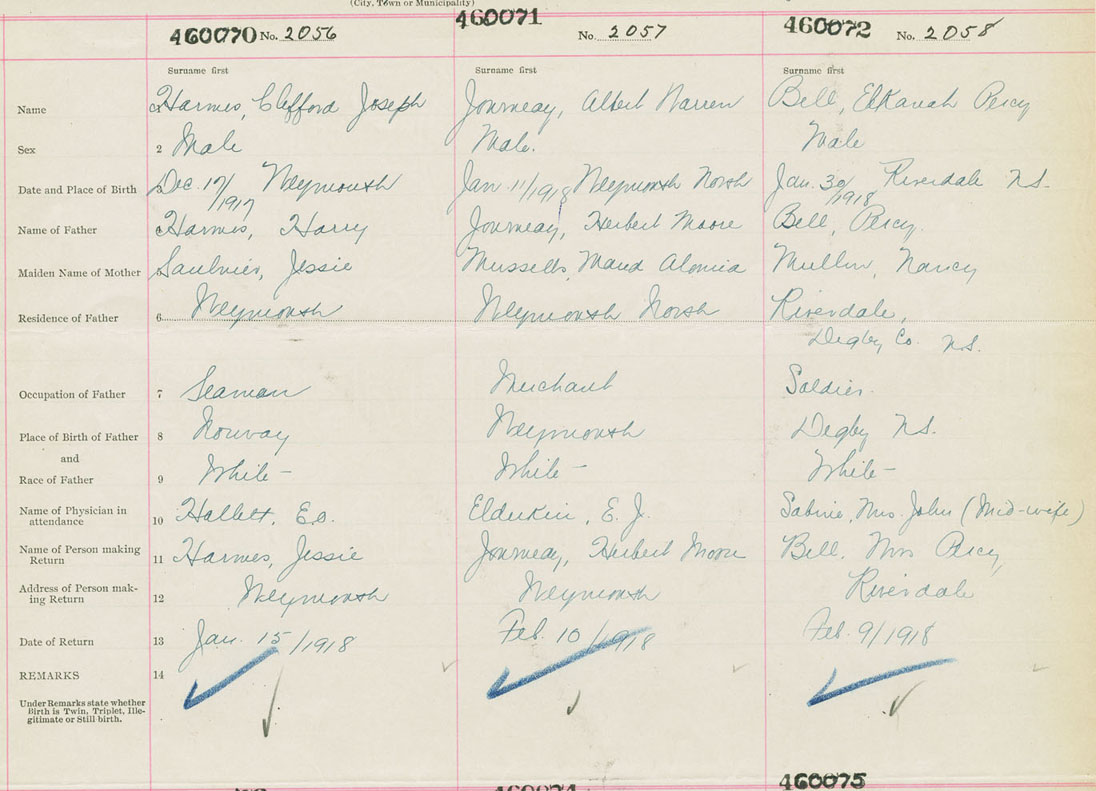 (City, Town or Municipality)
460070 No. 2056 460071 No. 2057 460072 No. 2058
Surname first Surname first Surname first
Name Harmes, Clifford Joseph Journeay, Albert Warren Bell, Elkanah Percy
Sex 2 Male Male. Male
Date and Place of Birth Dec. 17/1917 Weymouth Jan. 11/1918 Weymouth North Jan. 30/1918 Riverdale N.S.
Name of Father Harmes, Harry Journeay, Herbert Moore Bell, Percy.
Maiden Name of Mother Saulnier, Jessie Maud Mullin, Nancy
Residence of Father 6 Weymouth Weymouth North Riverdale,
Digby Co. N.S.
Occupation of Father 7 Seaman Merchant Soldier.
Place of Birth of Father 8 Norway Weymouth Digby N.S.
and
Race of Father 9 White - White - White -
Name of Physician in
attendance 10 Hallett, E.O. Elderkin, E. J. Sabine, Mrs. John (Mid-wife)
Name of Person making
Return 11 Harmes, Jessie Journeay, Herbert Moore Bell, Mrs Percy
Address of Person mak-
ing Return 12 Weymouth Weymouth Riverdale
Date of Return 13 Jan. 15/1918 Feb. 10/1918 Feb. 9/1918
REMARKS 14
Under Remarks state whether
Birth is Twin, Triplet, Ille-
gitimate or Still birth.
460075